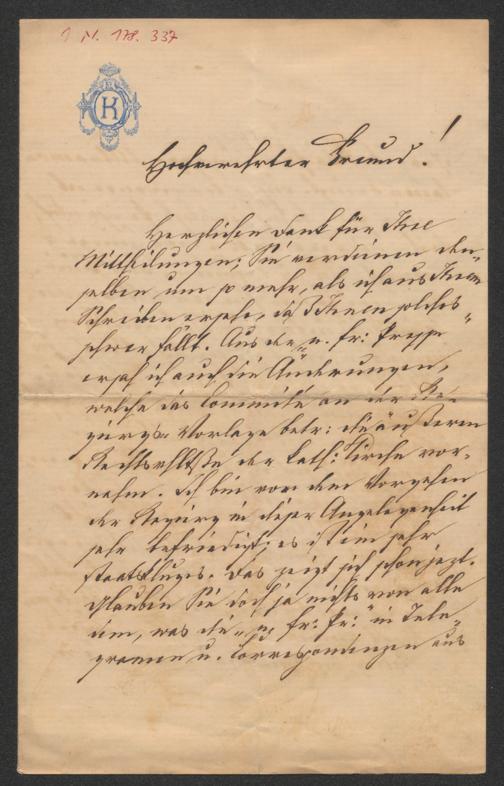 I N. 178.337
K
Hochverehrter Freund!
Herzlichen Dank für Ihre
Mittheilungen; Sie verdienen den-
selben um so mehr, als ich aus Ihrem
Schreiben ersehe, daß Ihnen solches
schwer fällt. Aus der „n. fr: Presse"
ersah ich auch die Änderungen,
welche das Comité an der Re-
girgs- Vorlage betr: die äußeren
Rechtsvhltße der kath: Kirche vor-
nahm. Ich bin von dem Vorgehen
der Regirg in dieser Angelegenheit
sehr befriedigt; es ist ein sehr
staatskluges. Das zeigt sich schon jezt.
Glauben Sie doch ja nichts von alle
dem, was die „n. fr: Pr:" in Tele-
gramen u. Correspondenzen aus